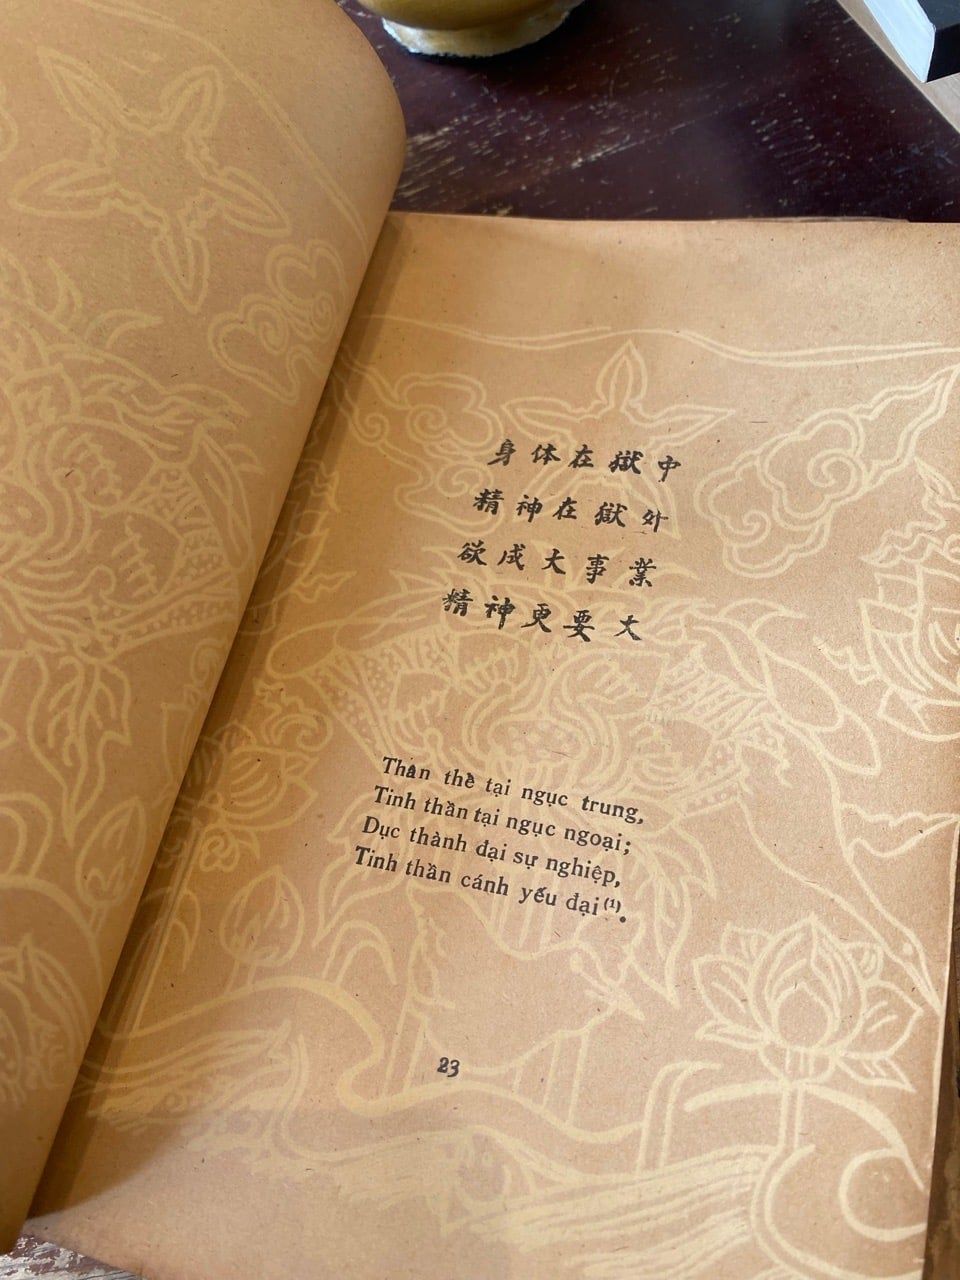 身体在獄中
精神在獄外
欲成大事業
精神更要大
Thân thể tại ngục trung,
Tinh thần tại ngục ngoại;
Dục thành đại sự nghiệp,
Tinh thần cánh yếu đại(1).
23